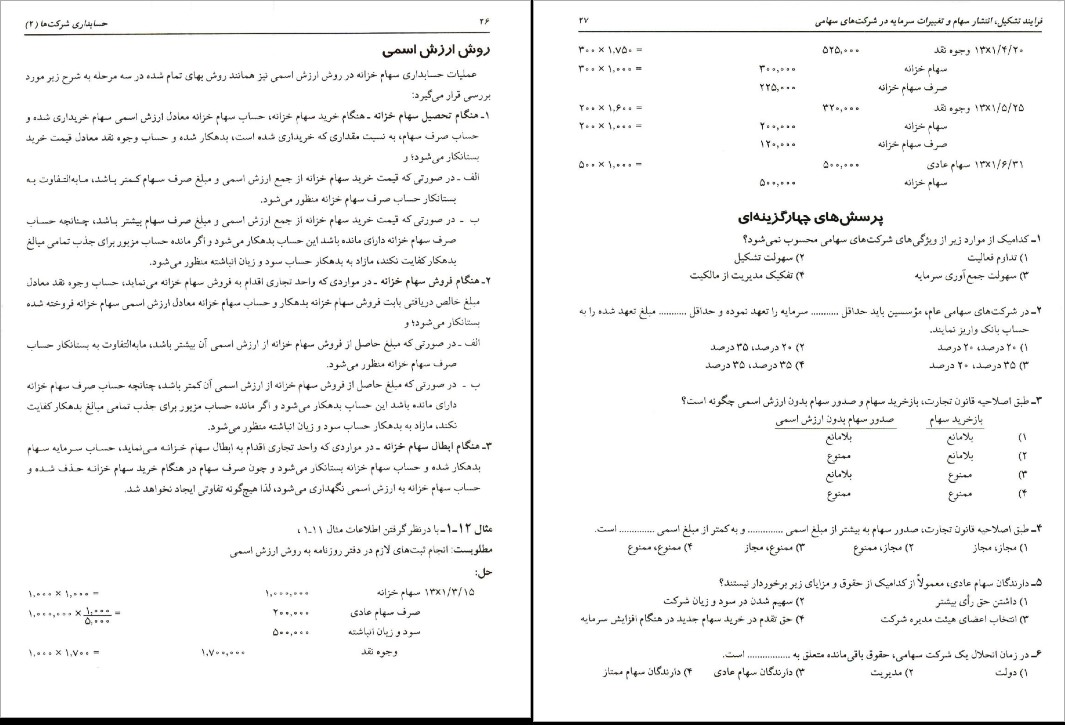 ۲۶ حسابداری شرکت‌ها (۲)
روش ارزش اسمی
عملیات حسابداری سهام خزانه در روش ارزش اسمی نیز همانند روش بهای تمام شده در سه مرحله به شرح زیر مورد
بررسی قرار می‌گیرد:
۱ـ هنگام تحصیل سهام خزانه ـ هنگام خرید سهام خزانه، حساب سهام خزانه معادل ارزش اسمی سهام خریداری شده و
حساب صرف سهام، به نسبت مقداری که خریداری شده است، بدهکار شده و حساب وجوه نقد معادل قیمت خرید
بستانکار می‌شود؛ و
الف ـ در صورتی که قیمت خرید سهام خزانه از جمع ارزش اسمی و مبلغ صرف سهام کمتر باشد، مابه‌التفاوت به
بستانکار حساب صرف سهام خزانه منظور می‌شود.
ب ـ در صورتی که قیمت خرید سهام خزانه از جمع ارزش اسمی و مبلغ صرف سهام بیشتر باشد، چنانچه حساب
صرف سهام خزانه دارای مانده باشد این حساب بدهکار می‌شود و اگر مانده حساب مزبور برای جذب تمامی مبالغ
بدهکار کفایت نکند، مازاد به بدهکار حساب سود و زیان انباشته منظور می‌شود.
۲ـ هنگام فروش سهام خزانه ـ در مواردی که واحد تجاری اقدام به فروش سهام خزانه می‌نماید، حساب وجوه نقد معادل
مبلغ خالص دریافتی بابت فروش سهام خزانه بدهکار و حساب سهام خزانه معادل ارزش اسمی سهام خزانه فروخته شده
بستانکار می‌شود؛ و
الف ـ در صورتی که مبلغ حاصل از فروش سهام خزانه از ارزش اسمی آن بیشتر باشد، مابه‌التفاوت به بستانکار حساب
صرف سهام خزانه منظور می‌شود.
ب ـ در صورتی که مبلغ حاصل از فروش سهام خزانه از ارزش اسمی آن کمتر باشد، چنانچه حساب صرف سهام خزانه
دارای مانده باشد این حساب بدهکار می‌شود و اگر مانده حساب مزبور برای جذب تمامی مبالغ بدهکار کفایت
نکند، مازاد به بدهکار حساب سود و زیان انباشته منظور می‌شود.
۳ـ هنگام ابطال سهام خزانه ـ در مواردی که واحد تجاری اقدام به ابطال سهام خزانه می‌نماید، حساب سرمایه سهام
بدهکار شده و حساب سهام خزانه بستانکار می‌شود و چون صرف سهام در هنگام خرید سهام خزانه حذف شده و
حساب سهام خزانه به ارزش اسمی نگهداری می‌شود، لذا هیچ‌گونه تفاوتی ایجاد نخواهد شد.
مثال ۱۲ـ۱ـ با درنظر گرفتن اطلاعات مثال ۱۱ـ۱ ،
مطلوبست: انجام ثبت‌های لازم در دفتر روزنامه به روش ارزش اسمی
حل:
۱۳x۱/۳/۱۵ سهام خزانه ۱,۰۰۰,۰۰۰ = ۱,۰۰۰ × ۱,۰۰۰
صرف سهام عادی ۲۰۰,۰۰۰ = ۱,۰۰۰,۰۰۰ × ۱,۰۰۰/۵,۰۰۰
سود و زیان انباشته ۵۰۰,۰۰۰
وجوه نقد ۱,۷۰۰,۰۰۰ = ۱,۰۰۰ × ۱,۷۰۰
فرایند تشکیل، انتشار سهام و تغییرات سرمایه در شرکت‌های سهامی ۲۷
۱۳x۱/۴/۲۰ وجوه نقد ۵۲۵,۰۰۰ = ۳۰۰ × ۱,۷۵۰
سهام خزانه ۳۰۰,۰۰۰ = ۳۰۰ × ۱,۰۰۰
صرف سهام خزانه ۲۲۵,۰۰۰
۱۳x۱/۵/۲۵ وجوه نقد ۳۲۰,۰۰۰ = ۲۰۰ × ۱,۶۰۰
سهام خزانه ۲۰۰,۰۰۰ = ۲۰۰ × ۱,۰۰۰
صرف سهام خزانه ۱۲۰,۰۰۰
۱۳x۱/۶/۳۱ سهام عادی ۵۰۰,۰۰۰ = ۵۰۰ × ۱,۰۰۰
سهام خزانه ۵۰۰,۰۰۰
پرسش‌های چهارگزینه‌ای
۱ـ کدامیک از موارد زیر از ویژگی‌های شرکت‌های سهامی محسوب نمی‌شود؟
۱) تداوم فعالیت ۲) سهولت تشکیل
۳) سهولت جمع‌آوری سرمایه ۴) تفکیک مدیریت از مالکیت
۲ـ در شرکت‌های سهامی عام، مؤسسین باید حداقل ........... سرمایه را تعهد نموده و حداقل ........... مبلغ تعهد شده را به
حساب بانک واریز نمایند.
۱) ۲۰ درصد، ۲۰ درصد ۲) ۲۰ درصد، ۳۵ درصد
۳) ۳۵ درصد، ۲۰ درصد ۴) ۳۵ درصد، ۳۵ درصد
۳ـ طبق اصلاحیه قانون تجارت، بازخرید سهام و صدور سهام بدون ارزش اسمی چگونه است؟
بازخرید سهام صدور سهام بدون ارزش اسمی
۱) بلامانع بلامانع
۲) بلامانع ممنوع
۳) ممنوع بلامانع
۴) ممنوع ممنوع
۴ـ طبق اصلاحیه قانون تجارت، صدور سهام به بیشتر از مبلغ اسمی .............. و به کمتر از مبلغ اسمی .............. است.
۱) مجاز، مجاز ۲) مجاز، ممنوع ۳) ممنوع، مجاز ۴) ممنوع، ممنوع
۵ـ دارندگان سهام عادی، معمولاً از کدامیک از حقوق و مزایای زیر برخوردار نیستند؟
۱) داشتن حق رأی بیشتر ۲) سهیم شدن در سود و زیان شرکت
۳) انتخاب اعضای هیئت مدیره شرکت ۴) حق تقدم در خرید سهام جدید در هنگام افزایش سرمایه
۶ـ در زمان انحلال یک شرکت سهامی، حقوق باقی‌مانده متعلق به ................. است.
۱) دولت ۲) مدیریت ۳) دارندگان سهام عادی ۴) دارندگان سهام ممتاز